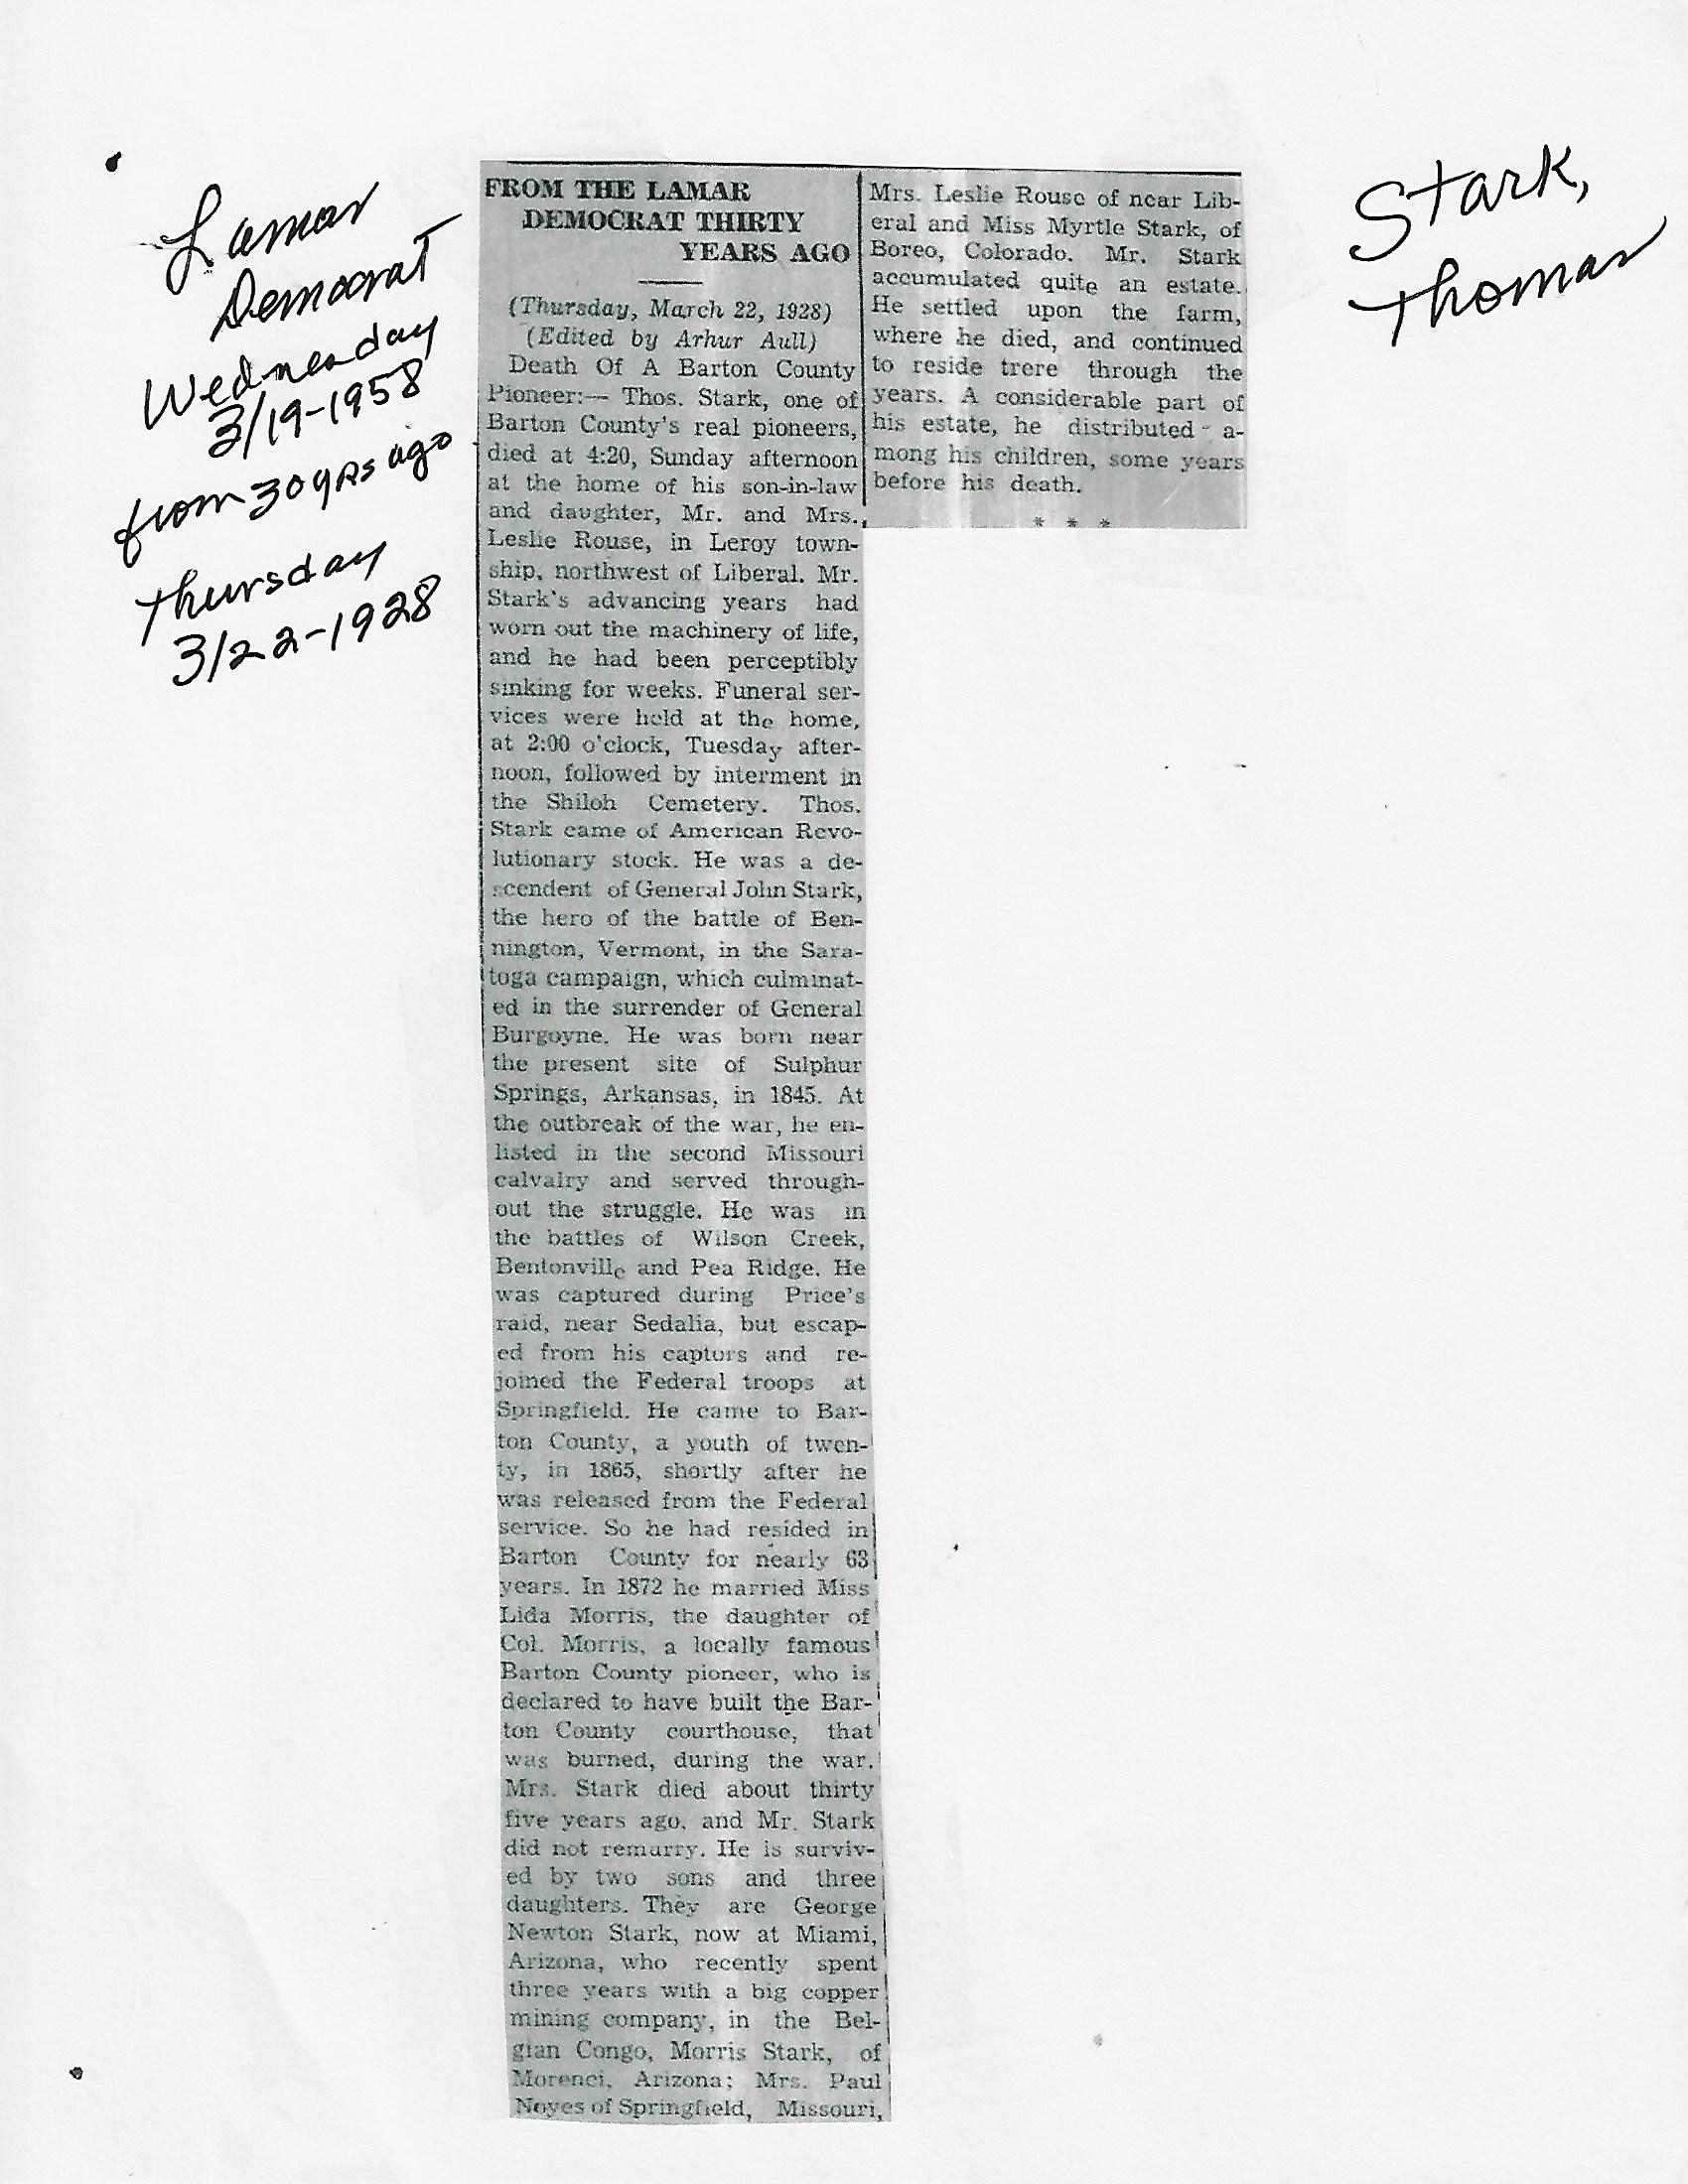 Lamar
Democrat
Wednesday
3/19-1958
from 30 yrs ago
Thursday
3/22-1928
FROM THE LAMAR
DEMOCRAT THIRTY
YEARS AGO
(Thursday, March 22, 1928)
(Edited by Arhur Aull)
Death Of A Barton County
Pioneer:— Thos. Stark, one of
Barton County's real pioneers,
died at 4:20, Sunday afternoon
at the home of his son-in-law
and daughter, Mr. and Mrs.
Leslie Rouse, in Leroy town-
ship, northwest of Liberal. Mr.
Stark's advancing years had
worn out the machinery of life,
and he had been perceptibly
sinking for weeks. Funeral ser-
vices were held at the home,
at 2:00 o'clock, Tuesday after-
noon, followed by interment in
the Shiloh Cemetery. Thos.
Stark came of American Revo-
lutionary stock. He was a de-
scendent of General John Stark,
the hero of the battle of Ben-
nington, Vermont, in the Sara-
toga campaign, which culminat-
ed in the surrender of General
Burgoyne. He was born near
the present site of Sulphur
Springs, Arkansas, in 1845. At
the outbreak of the war, he en-
listed in the second Missouri
calvalry and served through-
out the struggle. He was in
the battles of Wilson Creek,
Bentonville and Pea Ridge. He
was captured during Price's
raid, near Sedalia, but escap-
ed from his captors and re-
joined the Federal troops at
Springfield. He came to Bar-
ton County, a youth of twen-
ty, in 1865, shortly after he
was released from the Federal
service. So he had resided in
Barton County for nearly 63
years. In 1872 he married Miss
Lida Morris, the daughter of
Col. Morris, a locally famous
Barton County pioneer, who is
declared to have built the Bar-
ton County courthouse, that
was burned, during the war.
Mrs. Stark died about thirty
five years ago, and Mr. Stark
did not remarry. He is surviv-
ed by two sons and three
daughters. They are George
Newton Stark, now at Miami,
Arizona, who recently spent
three years with a big copper
mining company, in the Bel-
gian Congo, Morris Stark, of
Morenci, Arizona; Mrs. Paul
Noyes of Springfield, Missouri,
Mrs. Leslie Rouse of near Lib-
eral and Miss Myrtle Stark, of
Boreo, Colorado. Mr. Stark
accumulated quite an estate.
He settled upon the farm,
where he died, and continued
to reside trere through the
years. A considerable part of
his estate, he distributed a-
mong his children, some years
before his death.
* * *
Stark,
Thomas